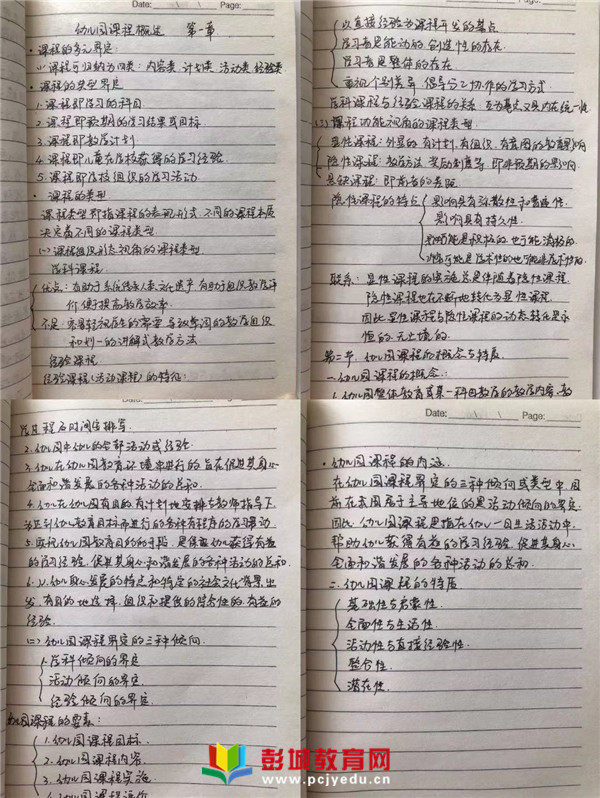 Date: Page:
幼儿园课程概述 第一章
·课程的多元界定
(1) 课程可归纳为四类：内容类、计划类、活动类、经验类
·课程的典型界定
1.课程即学习的科目
2.课程即预期的学习结果或目标
3.课程即教学计划
4.课程即儿童在学校获得的学习经验
5.课程即学校组织的学习活动
·课程的类型
课程类型即指课程的表现形式，不同的课程本质
决定着不同的课程类型
(一)课程组织形态视角的课程类型
学科课程
优点：有助于系统传承人类文化遗产 有助于组织教学评
价 便于提高教学效率
不足：容易轻视学生的需要 导致单调的教学组织
和划一的讲解式教学方法
经验课程
经验课程(活动课程)的特征：
以直接经验为课程开发的基点
学习者是能动的创造性的存在
学习者是整体的存在
重视个别差异 倡导分工协作的学习方式
学科课程与经验课程的关系
(二)课程功能视角的课程类型
显性课程：外显的 有计划、有组织、有意图的教育影响
隐性课程：
悬缺课程：
隐性课程的特点
影响具有弥散性和普遍性
影响具有持久性
联系：显性课程的实施总是伴随着隐性课程
隐性课程也在不断地转化为显性课程
因此显性课程与隐性课程的动态转化是永
恒的、无止境的
第二节、幼儿园课程的概念与特质
一.幼儿园课程的概念：
及其程与时间的排写
2.幼儿园中幼儿的全部活动或经验
3.幼儿在幼儿园教育环境中进行的 旨在促进其身心
全面和谐发展的各种活动的总和
4.幼儿在幼儿园有目的有计划地安排与教师指导下
为达到幼儿教育目标而进行的各种有程序的学习活动
5.实现幼儿园教育目的的手段，是保证幼儿获得有益
的学习经验，促进其身心和谐发展的各种活动的总和
6.从幼儿身心发展的特点和特定的社会文化背景出
发，有目的地选择、组织和提供的综合性的 有益的
经验
(二)幼儿园课程界定的三种倾向
学科倾向的界定
活动倾向的界定
经验倾向的界定
幼儿园课程的要素：
1.幼儿园课程目标
2.幼儿园课程内容
3.幼儿园课程实施
4.幼儿园课程评价
Date: Page:
·幼儿园课程的内涵
在幼儿园课程界定的三种倾向或类型中，目
前在我国居于主导地位的是活动倾向的界定
因此，幼儿园课程是指在幼儿一日生活活动中，
帮助幼儿获得有益的学习经验，促进其身心
全面和谐发展的各种活动的总和
二.幼儿园课程的特质
基础性与启蒙性
全面性与生活性
活动性与直接经验性
整合性
潜在性
彭城教育网
www.pcjyedu.cn